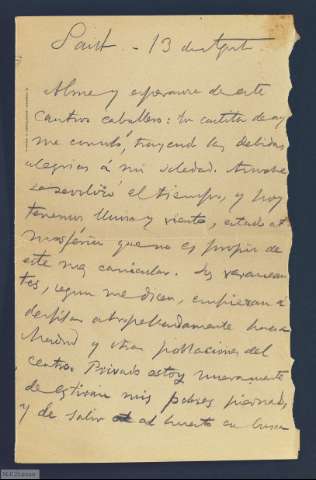 13 de Agost.
Alma y esperanza de este
cautivo caballero: tu cartita de ay
me consoló, trayendo las debidas
alegrías á mi soledad. Anoche
se revolvió el tiempo, y hoy
tenemos lluvia y viento, estado at
mosférico que no es propio de
este mes canicular. Los veranean
tes, según me dicen, empiezan á
desfilar atropelladamente hacia
Madrid y otras poblaciones del
centro. Privado estoy nuevamente
de estirar mis pobres piernas,
y de salir al huerto en busca